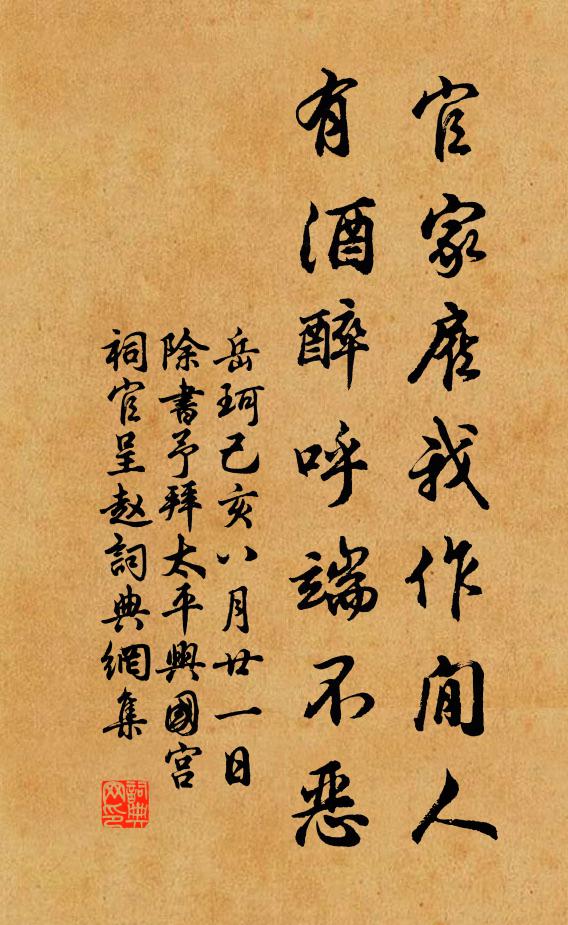 官家雇我作閒人
有酒醉呼端不惡
岳珂己亥八月廿一日
除書予拜太平興國宮
祠官呈趙詞典網集
詞典网印